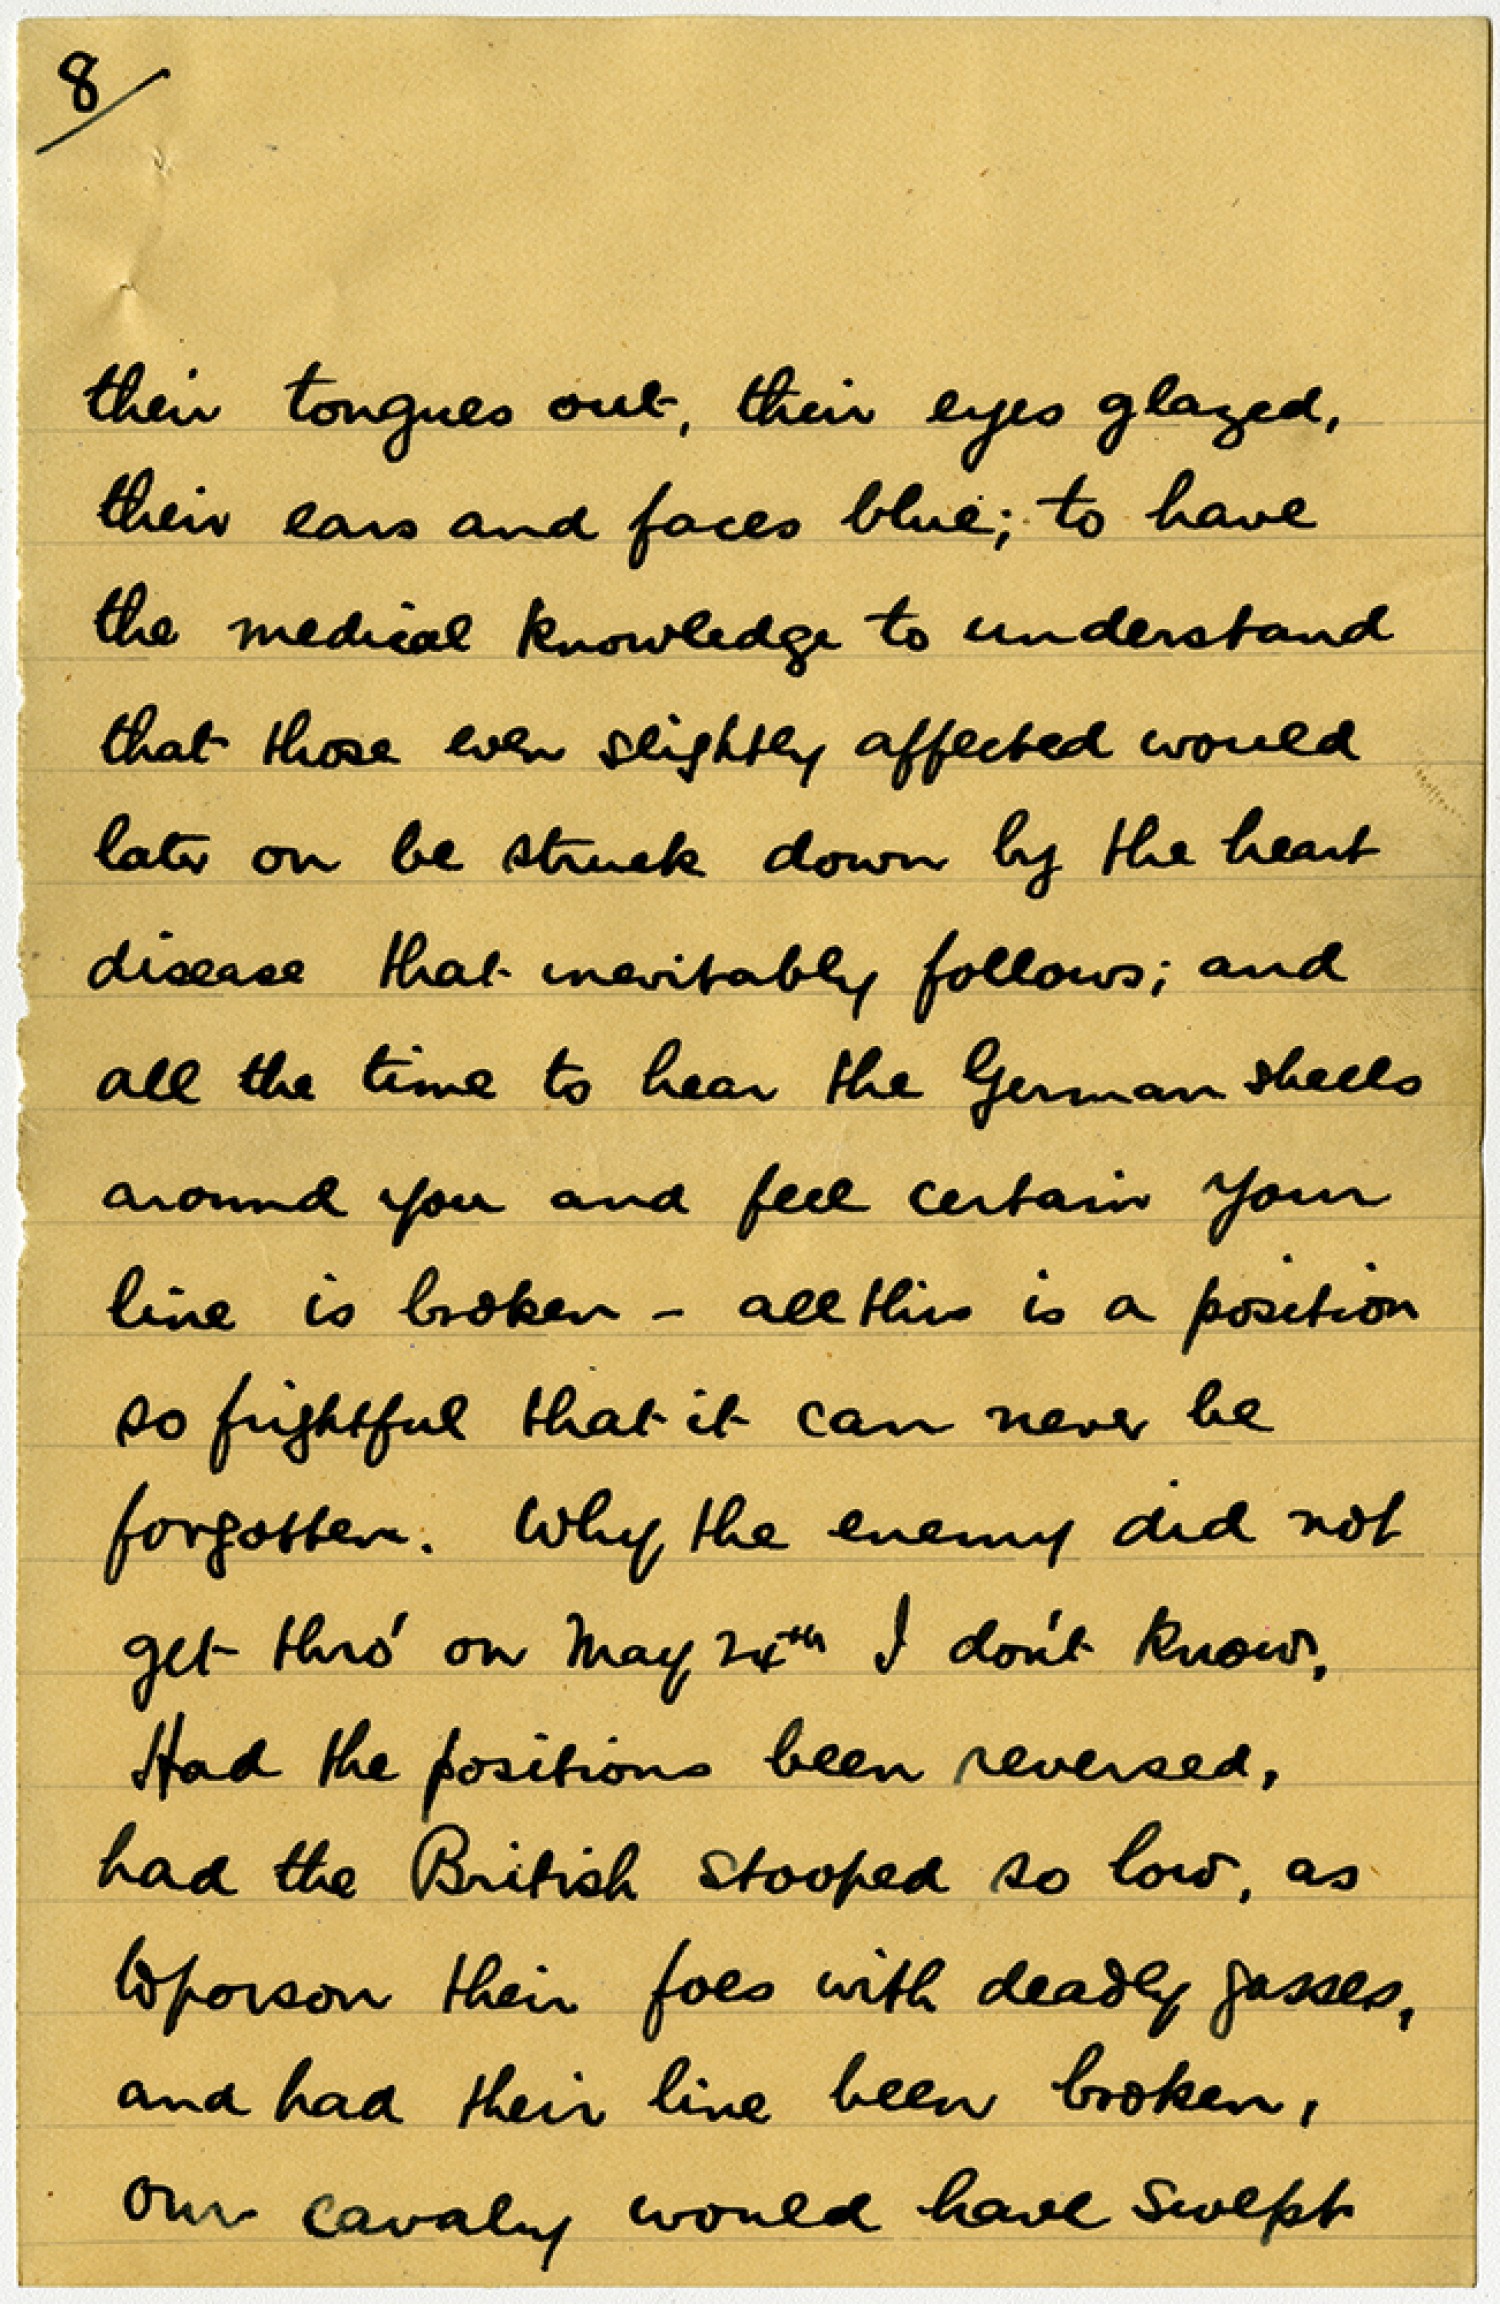 8/
their tongues out, their eyes glazed,
their ears and faces blue; to have
the medical knowledge to understand
that those even slightly affected would
later on be struck down by the heart
disease that inevitably follows; and
all the time to hear the German shells
around you and feel certain your
line is broken - all this is a position
so frightful that it can never be
forgotten. Why the enemy did not
get thro' on May 24th I don't know.
Had the positions been reversed,
had the British stooped so low, as
to poison their foes with deadly gasses,
and had their line been broken,
our cavalry would have swept